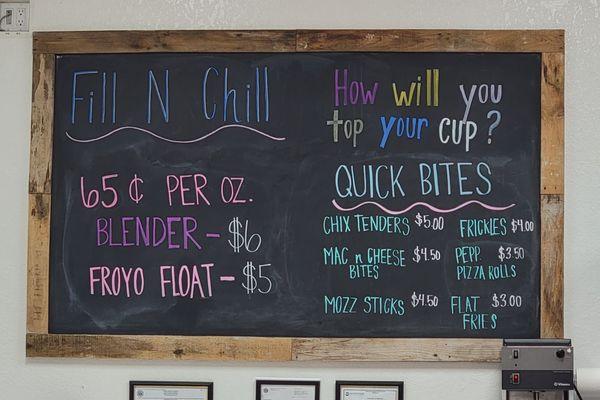 Fill N Chill
65¢ PER OZ.
BLENDER - $6
FROYO FLOAT - $5
How will you
top your cup?
QUICK BITES
CHIX TENDERS $5.00
MAC n CHEESE $4.50
BITES
MOZZ STICKS $4.50
FRICKLES $4.00
PEPP. $3.50
PIZZA ROLLS
FLAT $3.00
FRIES